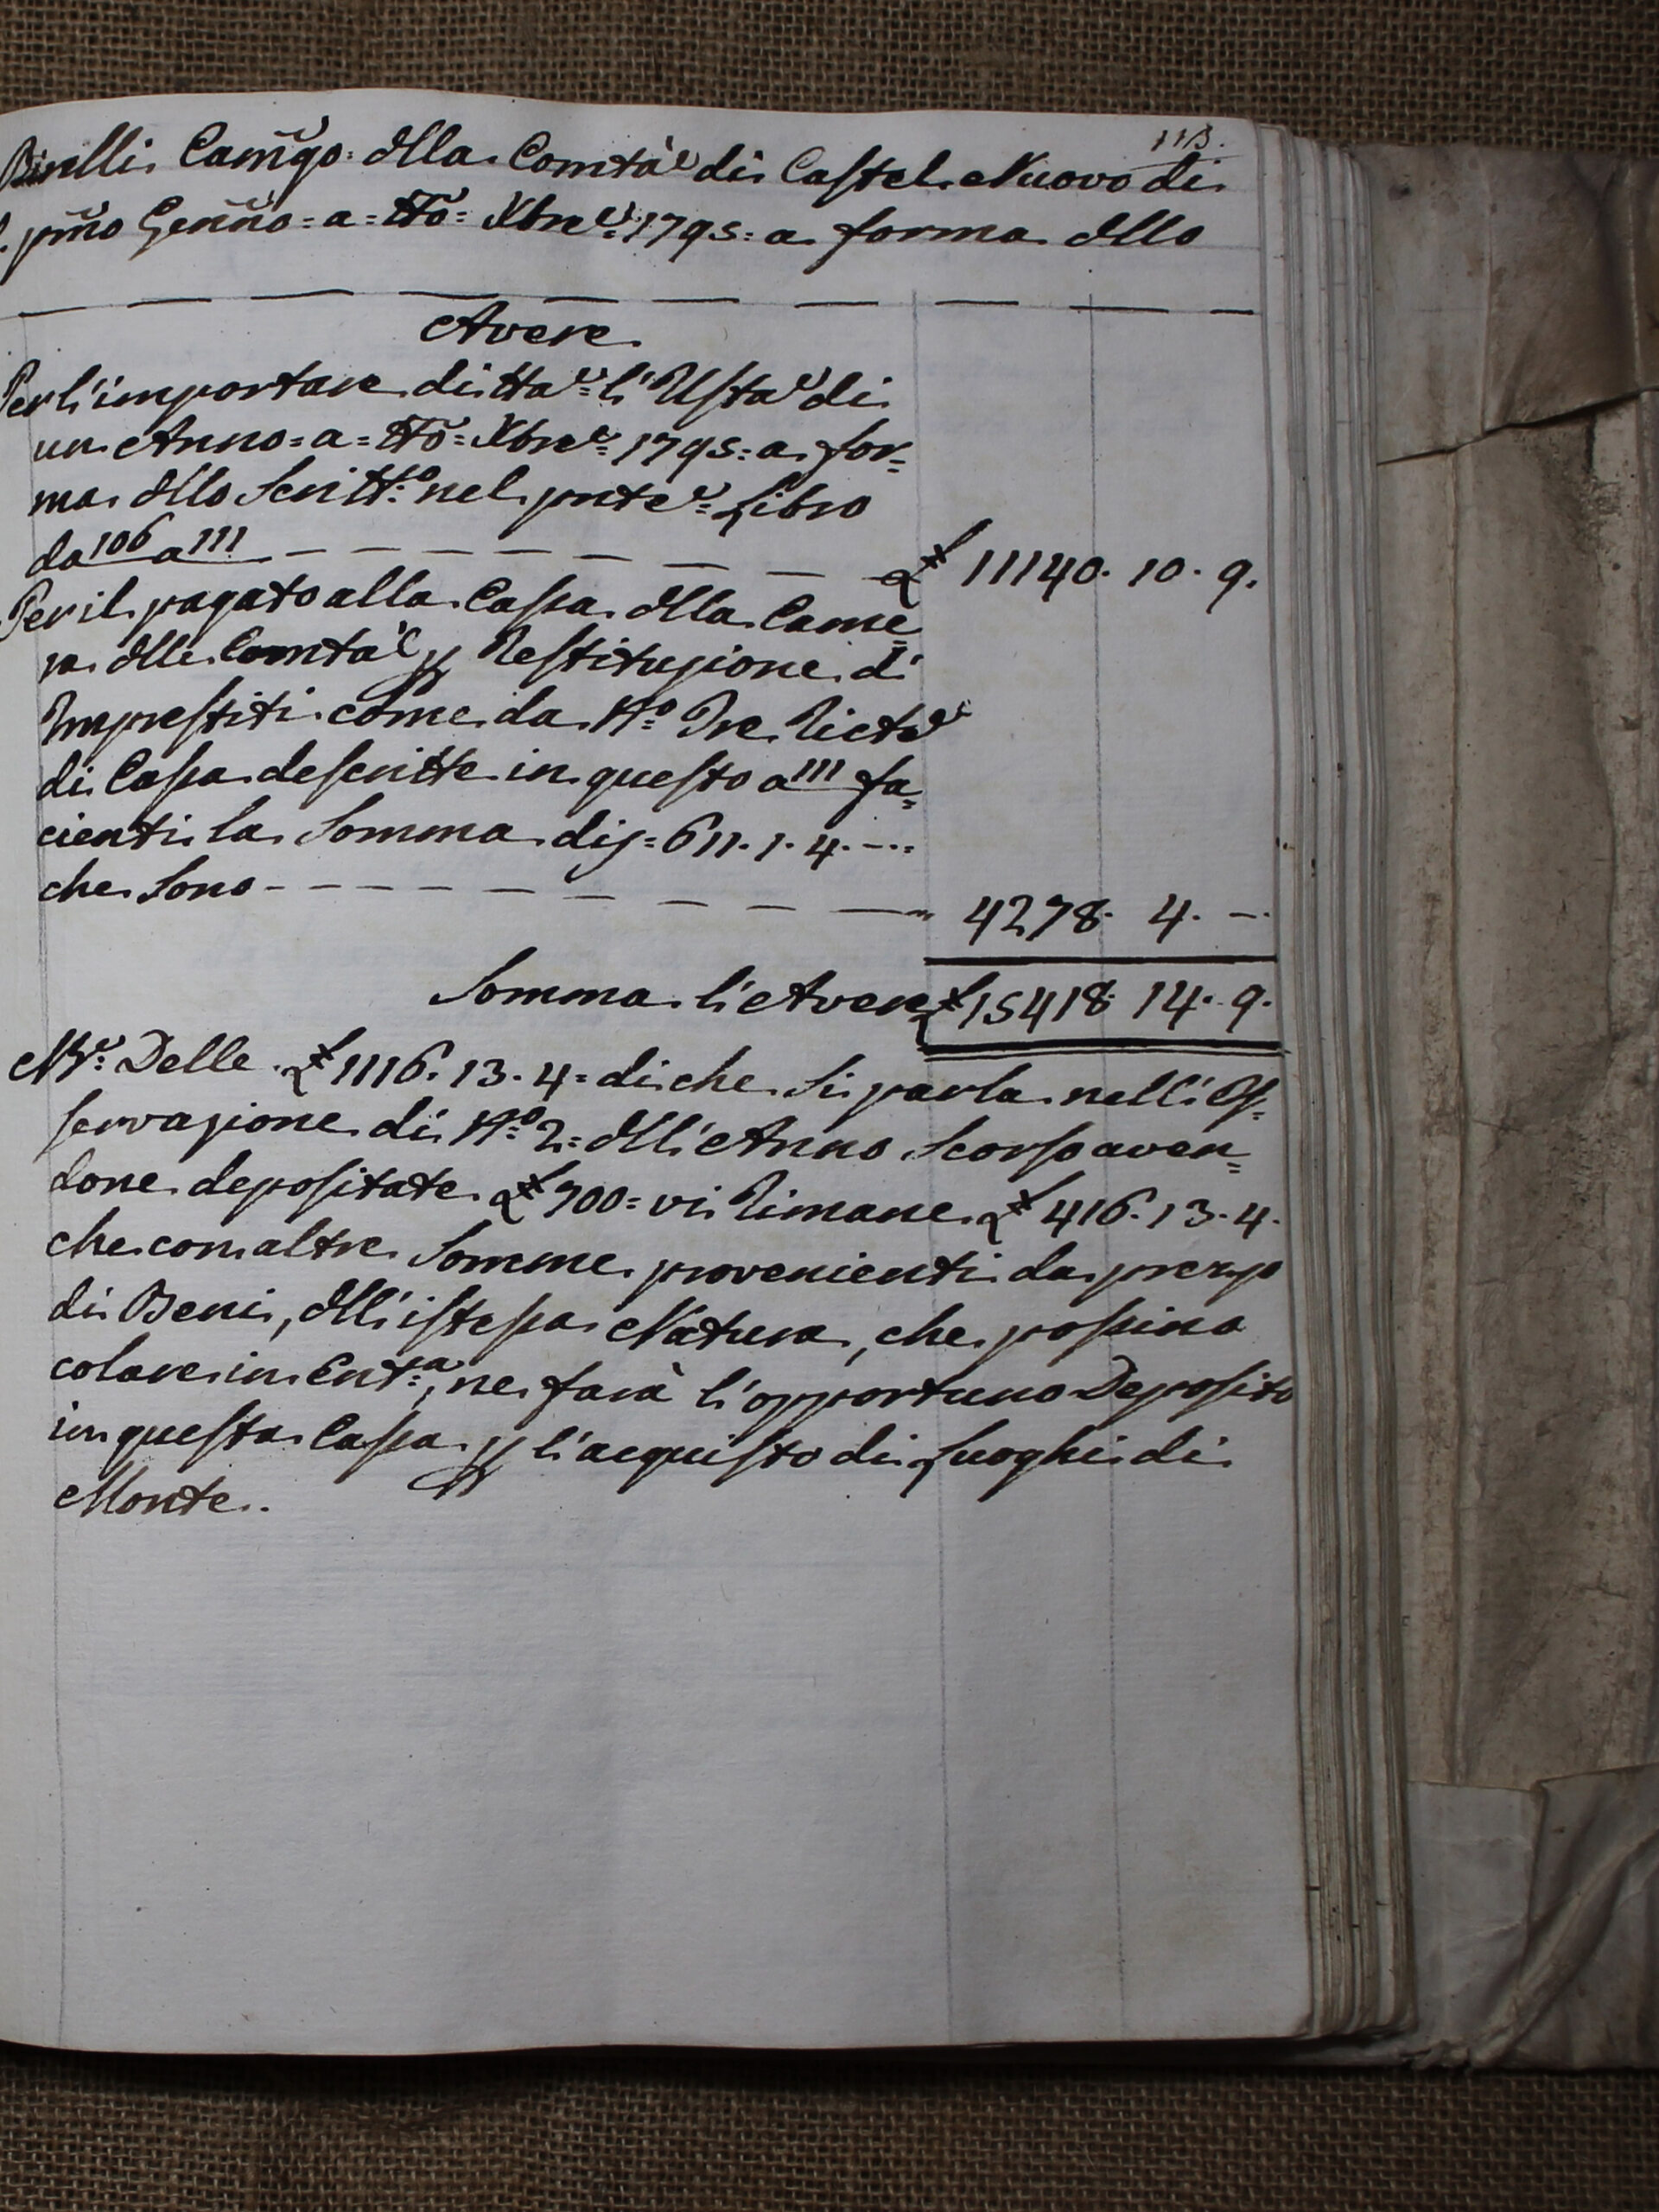 113.
Binelli Camgo: dlla Comtà di Castel Nuovo di
pmo Genno = a = tto = Xbre = 1795 = a forma dllo
Avere
Per l'importare di tta = l'Usta di
un Anno = a = tto = Xbre = 1795 = a for=
ma dllo Scritto nel pnte = Libro
da 106 a 111 £ 11140. 10. 9.
Per il pagato alla Cassa dlla Came=
ra dlle Comtà p Restituzione di
Imprestiti come da No Tre Ricte
di Cassa descritte in questo a 111 fa=
cienti la Somma di 611. 1. 4.
che sono 4278. 4. -
Somma l'Avere £ 15418. 14. 9.
NB: Delle £ 1116. 13. 4 = di che si parla nell'Os=
servazione di No 2 = dll'Anno Scorso aven=
done depositate £ 700 = vi rimane £ 416. 13. 4.
che con altre Somme provenienti da prezzo
di Beni, dll'istessa Natura, che possino
colare in Enta, ne farà l'opportuno Deposito
in questa Cassa p l'acquisto di Luoghi di
Monte.